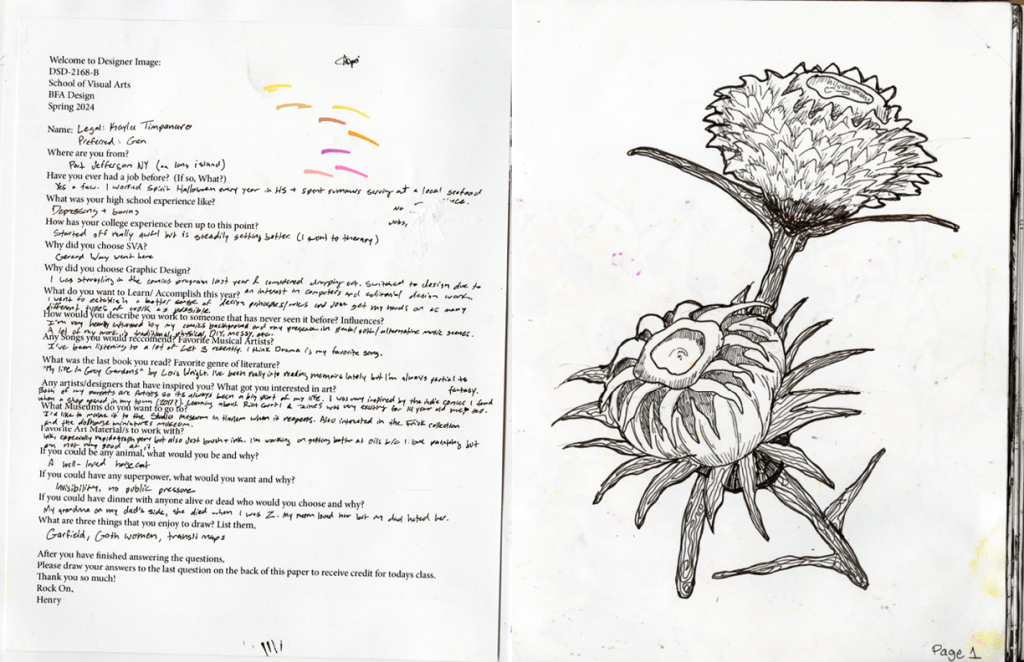 Welcome to Designer Image:
DSD-2168-B
School of Visual Arts
BFA Design
Spring 2024
Name: Legal: Kayla Timpanaro
Preferred: Gen
Where are you from?
Port Jefferson NY (on long island)
Have you ever had a job before? (If so, What?)
Yes a few. I worked Spirit Halloween every year in HS + spent summers serving at a local seafood
What was your high school experience like?
Depressing + boring
How has your college experience been up to this point?
Started off really awful but is steadily getting better (I went to therapy)
Why did you choose SVA?
Gerard Way went here
Why did you choose Graphic Design?
I was struggling in the comics program last year & considered dropping out. Switched to design due to
an interest in computers and editorial design work.
What do you want to Learn/ Accomplish this year?
I want to establish a better sense of design principles/rules and just get my hands on as many
different types of work as possible.
How would you describe you work to someone that has never seen it before? Influences?
I'm very heavily influenced by my comics background and my presence in punk/goth/alternative music scenes.
A lot of my work is traditional, physical, DIY, messy, etc.
Any Songs you would reccomend? Favorite Musical Artists?
I've been listening to a lot of Lest 3 recently. I think Drama is my favorite song.
What was the last book you read? Favorite genre of literature?
"My life In Grey Gardens" by Lois Wright. I've been really into reading memoirs lately but I'm always partial to
fantasy.
Any artists/designers that have inspired you? What got you interested in art?
Both of my parents are Artists so it's always been a big part of my life. I was very inspired by the indie comics I found
when a shop opened in my town Learning about Riot Grrrl & zines was very exciting for 14 year old me
What Museums do you want to go to?
I'd like to make it to the Studio Museum in Harlem when it reopens. Also interested in the Frick collection
and the dollhouse miniatures museum.
Favorite Art Material/s to work with?
Ink, especially rapidograph pens but also just brush + ink. I'm working on getting better at oils b/c I love painting but
am not very good at it.
If you could be any animal, what would you be and why?
A well-loved housecat
If you could have any superpower, what would you want and why?
Invisibility, no public pressure
If you could have dinner with anyone alive or dead who would you choose and why?
My grandma on my dad's side, she died when I was 2. My mom loved her but my dad hated her.
What are three things that you enjoy to draw? List them,
Garfield, Goth women, transit maps
After you have finished answering the questions,
Please draw your answers to the last question on the back of this paper to receive credit for todays class.
Thank you so much!
Rock On,
Henry
Page 1